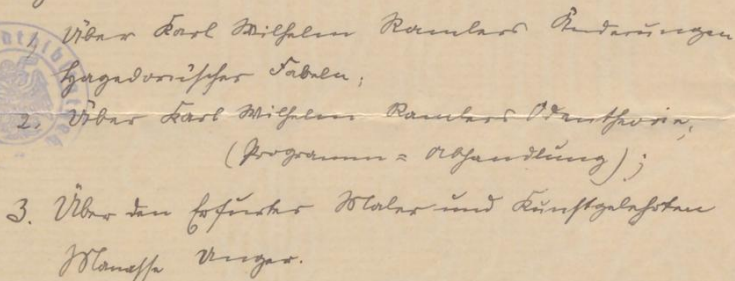 1, Über Karl Wilhelm Ramlers Änderungen
Hagedornischer Fabeln;
2. Über Karl Wilhelm Ramlers Odentheorie,
(Programm = Abhandlung);
3. Über den Erfurter Maler und Kunstgelehrten
Manasse Unger.